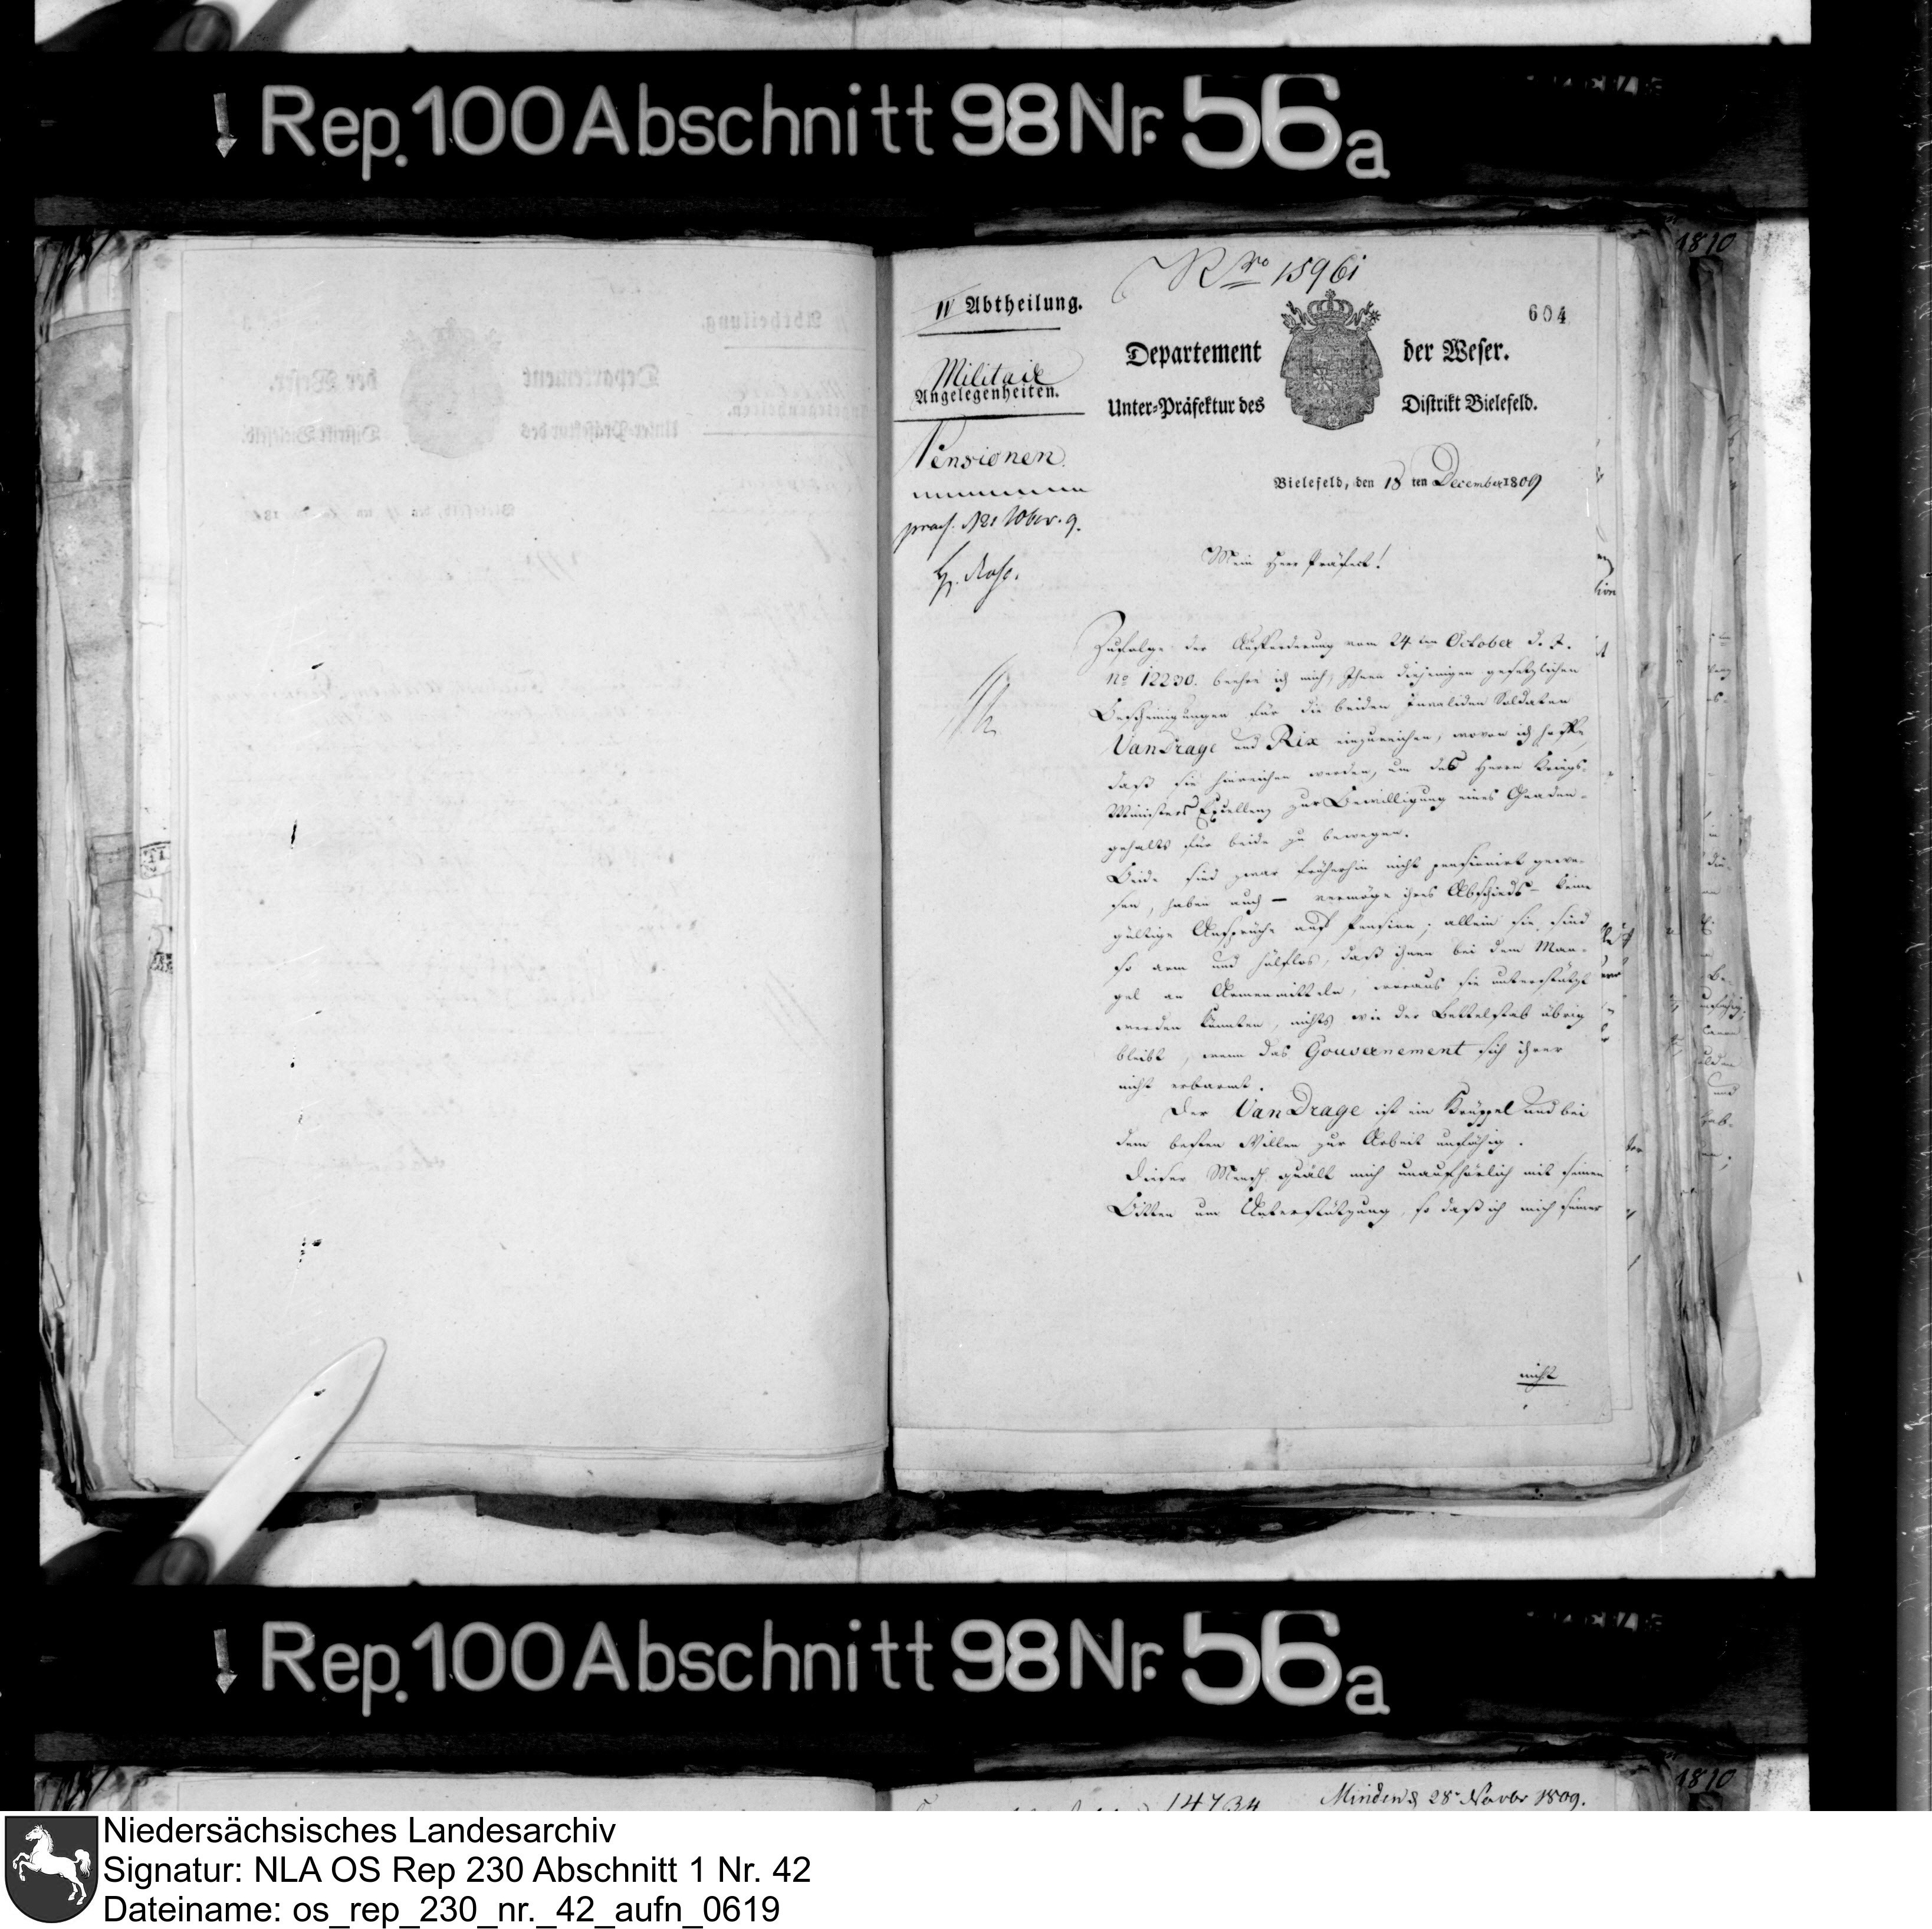 Rep. 100 Abschnitt 98 Nr. 56a
1810
N ro 15961
IV Abtheilung.
604
Departement der Weser.
Militair
Angelegenheiten.
Unter-Präfektur des Distrikt Bielefeld.
Pensionen
Bielefeld, den 18 ten December 1809
praes. d 21 Xber. 9.
Mein Herr Präfect!
Zufolge der Aufforderung vom 24ten October d. J.
No 12230. beehre ich mich, Ihnen diejenigen gesetzlichen
Bescheinigungen für die beiden Invaliden Soldaten
VanDrage und Rix einzureichen, wovon ich hoffe,
daß sie hinreichen werden, um des Herrn Kriegs-
Ministers Excellenz zur Bewilligung eines Gnaden-
gehalts für beide zu bewegen.
Beide sind zwar früherhin nicht pensionirt gewe-
sen, haben auch – vermöge ihres Abschieds – keine
gültige Ansprüche auf Pension; allein sie sind
so arm und hülflos, daß ihnen bei dem Man-
gel an Armenmitteln, woraus sie unterstützt
werden könnten, nichts wie der Bettelstab übrig
bleibt, wenn das Gouvernement sich ihrer
nicht erbarmt.
Der VanDrage ist ein Krüppel und bei
dem besten Willen zur Arbeit unfähig.
Dieser Mensch quält mich unaufhörlich mit seinen
Bitten um Unterstützung, so daß ich mich seiner
nicht
Rep. 100 Abschnitt 98 Nr. 56a
1810
14734
Minden d 28 Novbr 1809.
Niedersächsisches Landesarchiv
Signatur: NLA OS Rep 230 Abschnitt 1 Nr. 42
Dateiname: os_rep_230_nr._42_aufn_0619